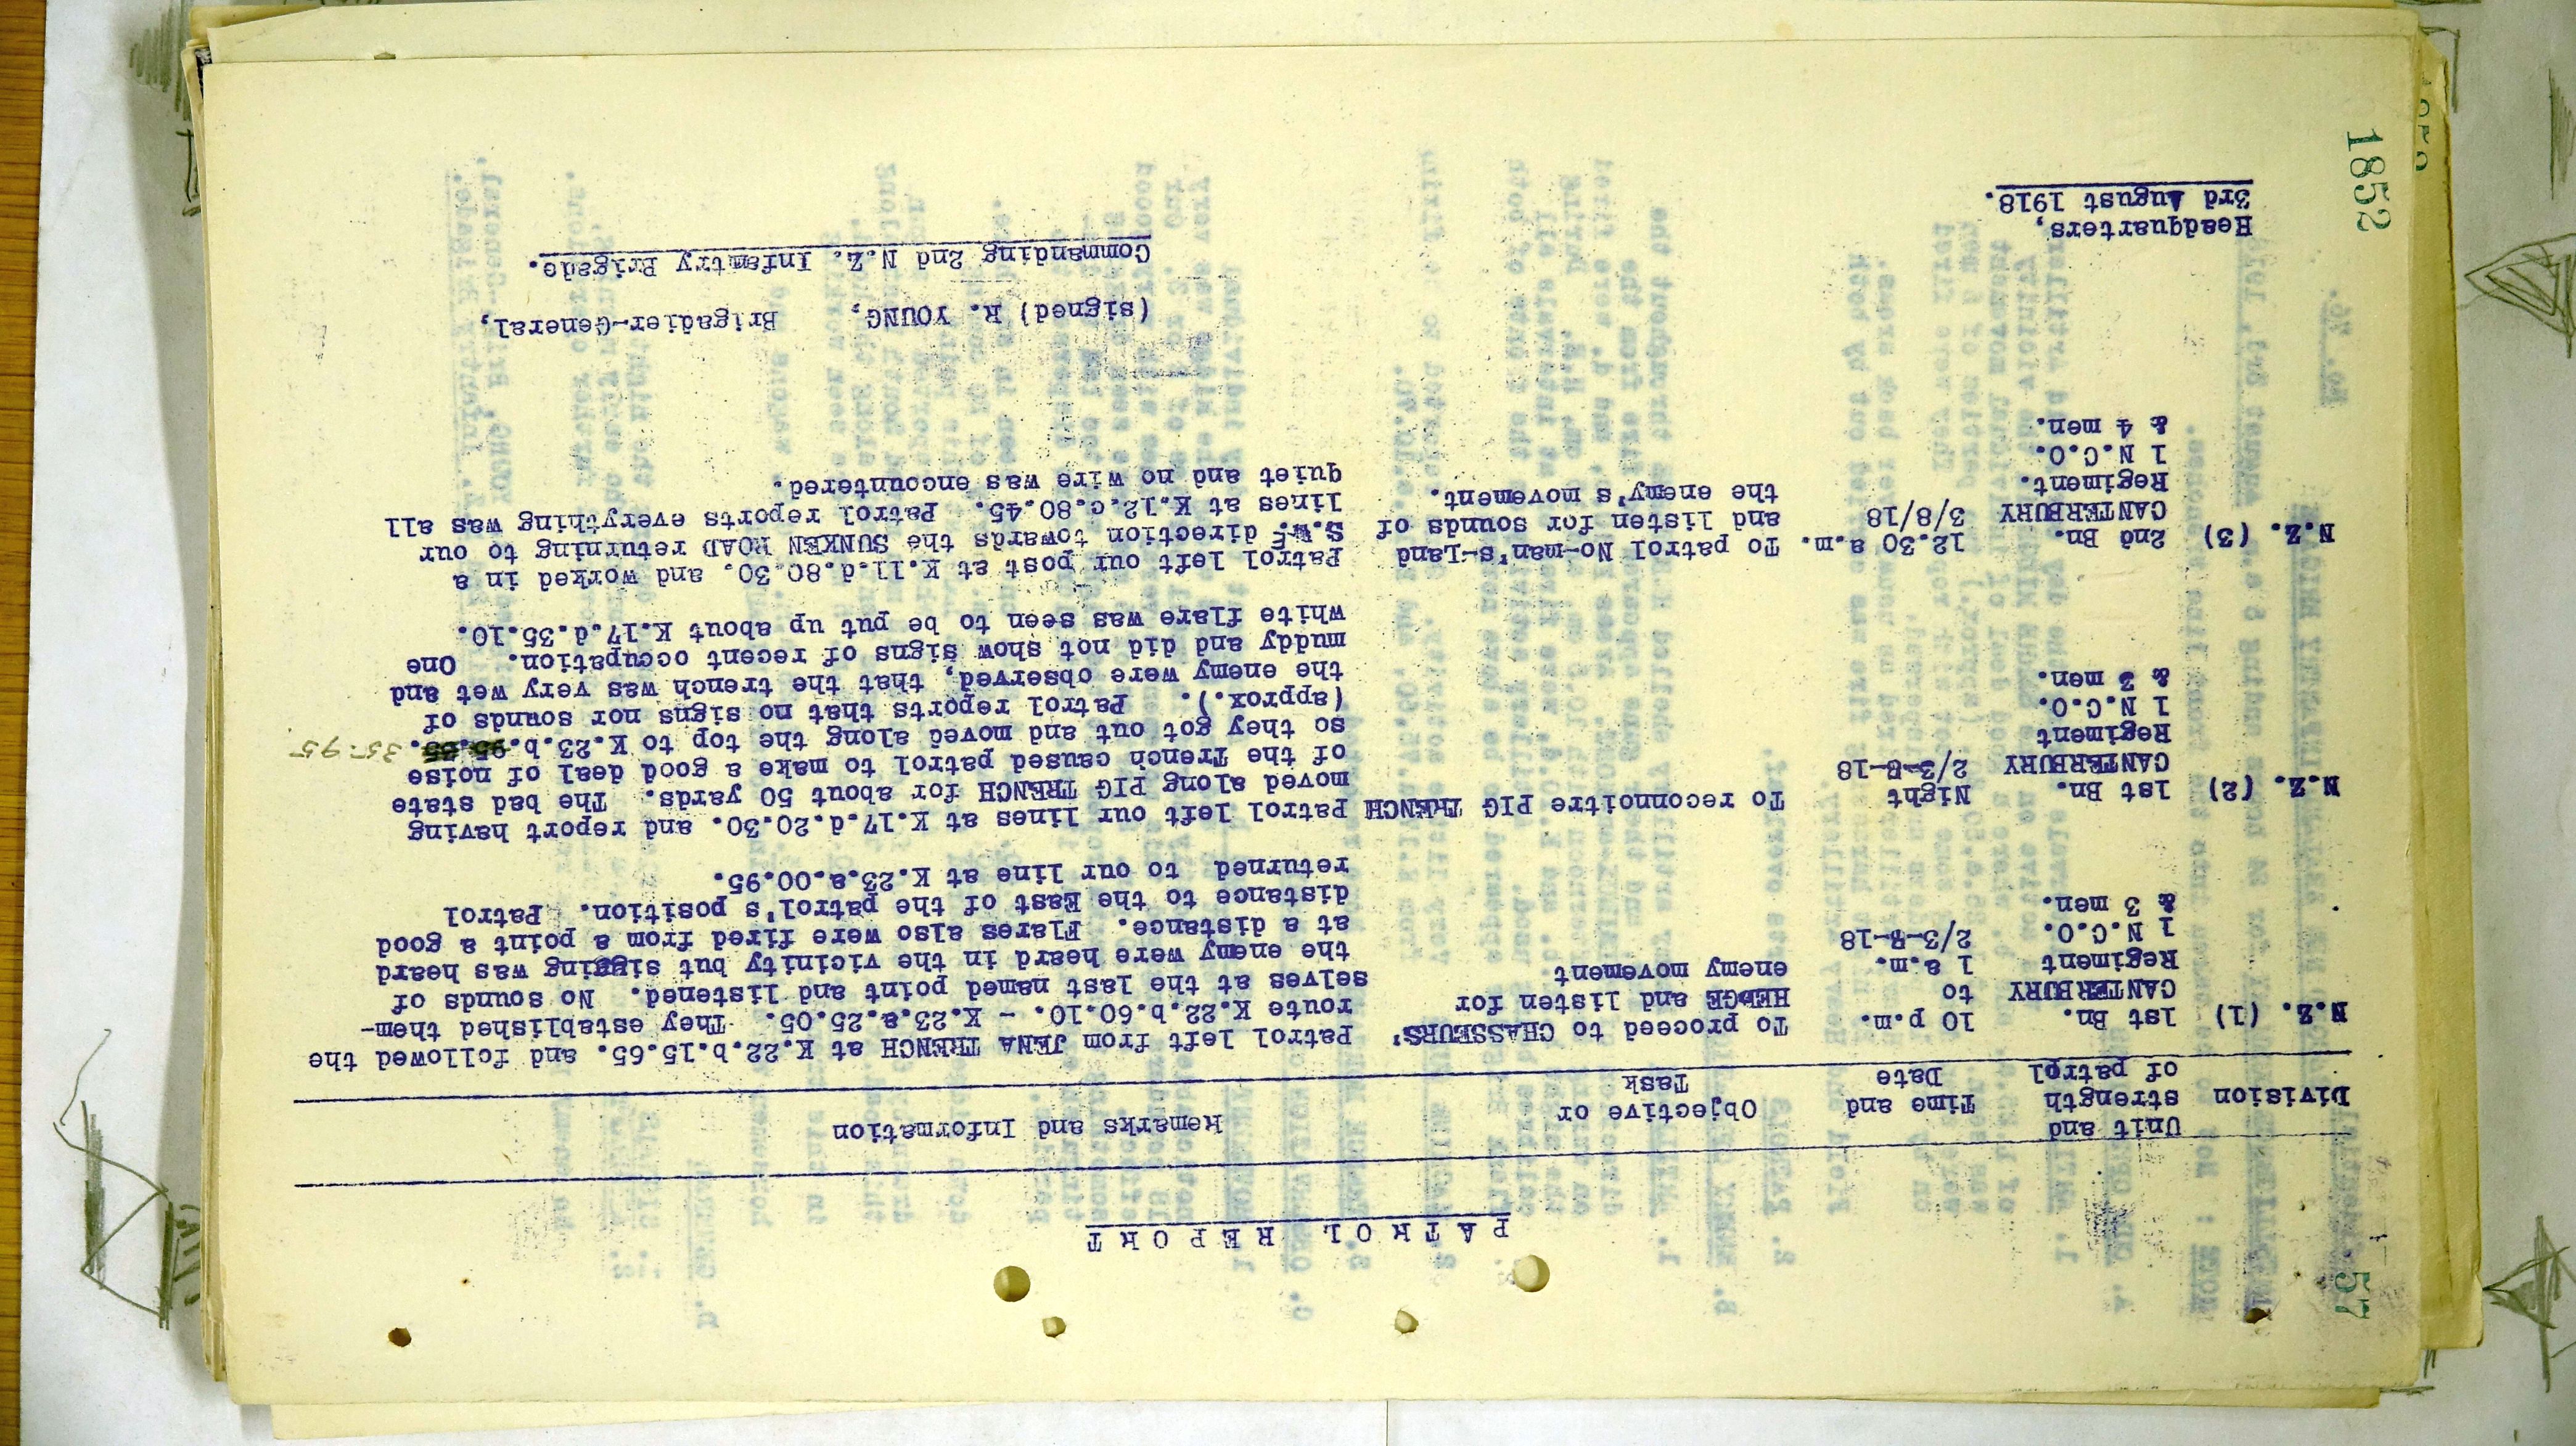 PATROL REPORT
Division
Unit and
strength
of patrol
Time and
Date
Objective or
Task
Remarks and Information
N.Z. (1)
1st Bn.
CANTERBURY
Regiment
1 N.C.O.
& 3 men.
10 p.m.
to
1 a.m.
2/3-8-18
To proceed to CHASSEURS'
HEDGE and listen for
enemy movement
Patrol left from JENA TRENCH at K.22.b.15.65. and followed the
route K.22.b.60.10. - K.23.a.25.05. They established them-
selves at the last named point and listened. No sounds of
the enemy were heard in the vicinity but sigging was heard
at a distance. Flares also were fired from a point a good
distance to the East of the patrol's position. Patrol
returned to our line at K.23.a.00.95.
N.Z. (2)
1st Bn.
CANTERBURY
Regiment
1 N.C.O.
& 3 men.
Night
2/3-8-18
To reconnoitre PIG TRENCH
Patrol left our lines at K.17.d.20.30. and report having
moved along PIG TRENCH for about 50 yards. The bad state
of the Trench caused patrol to make a good deal of noise
so they got out and moved along the top to K.23.b. 35.95
(approx.). Patrol reports that no signs nor sounds of
the enemy were observed, that the trench was very wet and
muddy and did not show signs of recent occupation. One
white flare was seen to be put up about K.17.d.35.10.
N.Z. (3)
2nd Bn.
CANTERBURY
Regiment.
1 N.C.O.
& 4 men.
12.30 a.m.
3/8/18
To patrol No-man's-Land
and listen for sounds of
the enemy's movement.
Patrol left our post at K.11.d.80.30. and worked in a
S.E. direction towards the SUNKEN ROAD returning to our
lines at K.12.c.80.45. Patrol reports everything was all
quiet and no wire was encountered.
(signed) R. YOUNG, Brigadier-General,
Commanding 2nd N.Z. Infantry Brigade.
Headquarters,
3rd August 1918.
1852
57